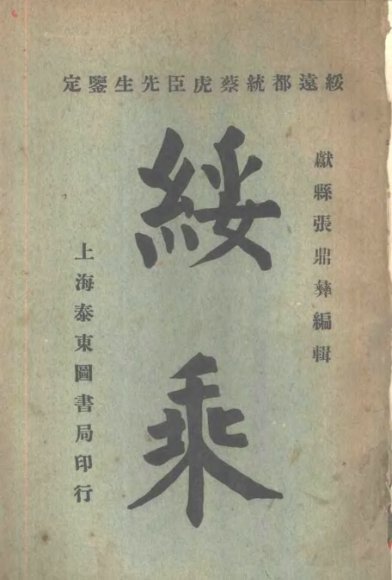 綏遠都統蔡虎臣先生鑒定
獻縣張鼎彝編輯
綏乘
上海泰東圖書局印行